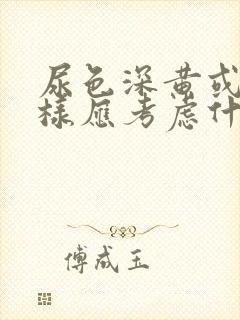 尿色深黄或
样应考虑什
傅成玉